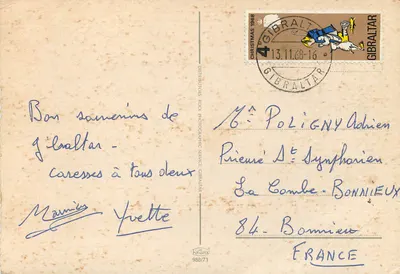 GIBRALTAR
13.11.68-16
GIBRALTAR
CHRISTMAS 1968
4
GIBRALTAR
Bon souvenirs de
Gibraltar -
caresses à tous deux
Yvette
Mᵉ POLIGNY Adrien
Prieuré St Symphorien
La Combe-BONNIEUX
84. Bonnieux
FRANCE